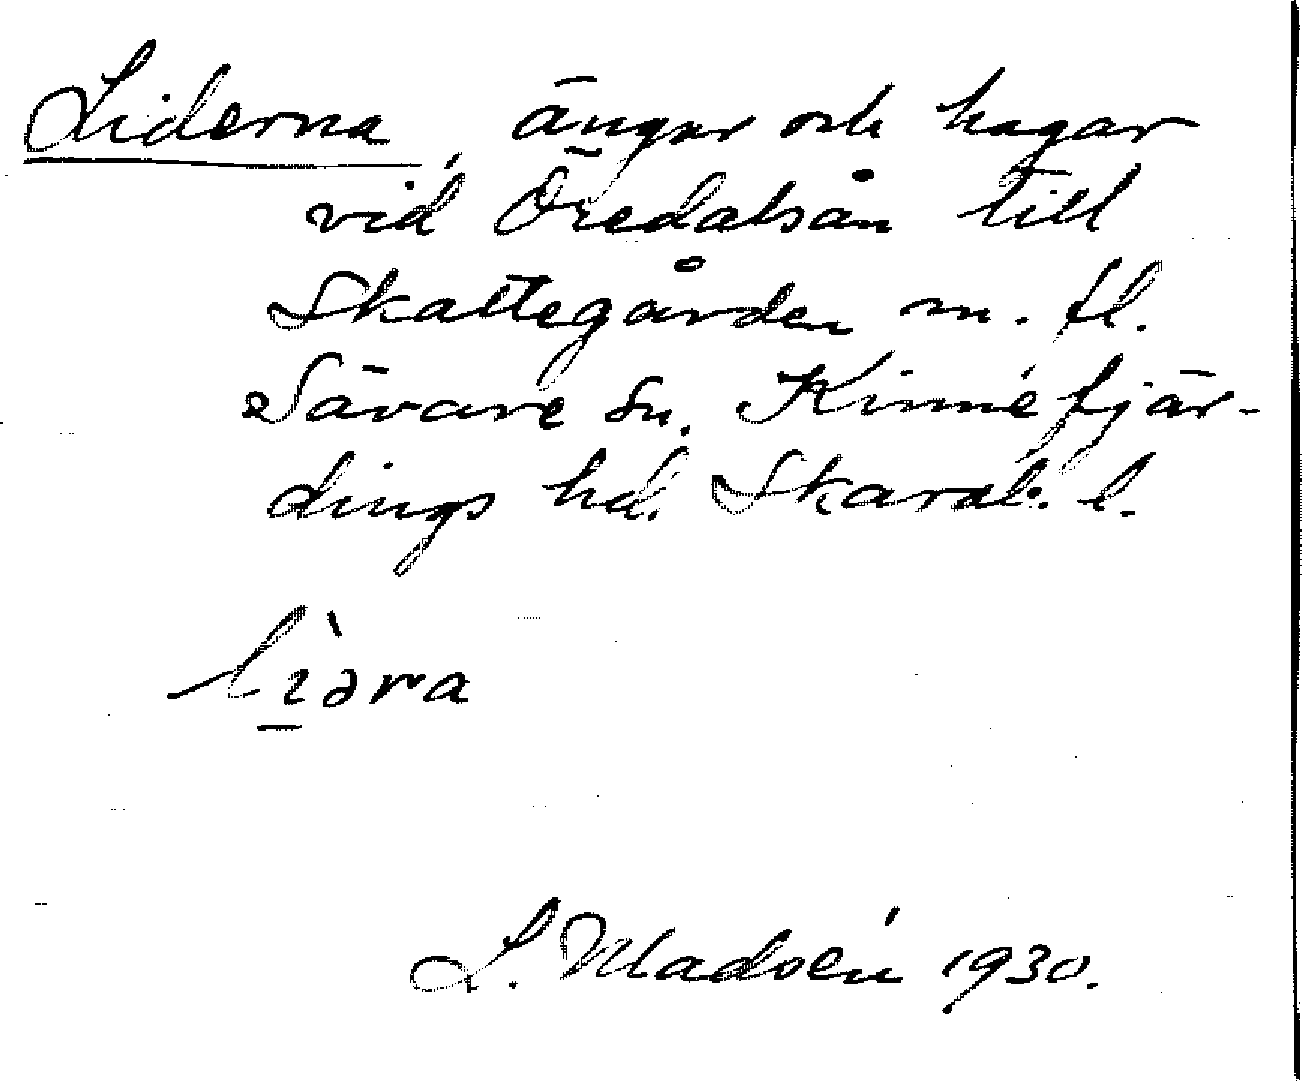 Liderna, ängar och hagar
vid Öredalsån till
Skattegården m. fl.
Sävare sn. Kinnefjär-
dings hd. Skarab. l.
lìɔra
L. Madsén 1930.